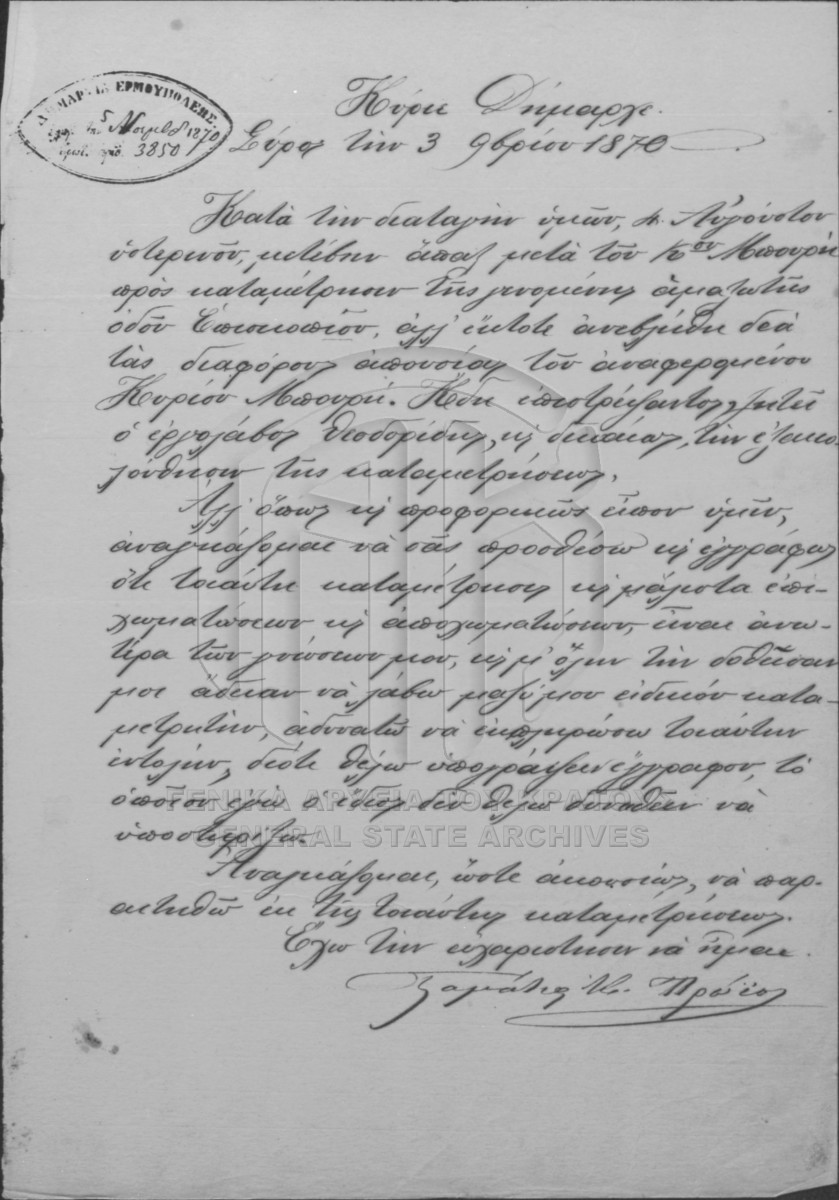 ΔΗΜΑΡΧΙΑ ΕΡΜΟΥΠΟΛΕΩΣ
τη 5 Νοεμβ 1870
3850
Κύριε Δήμαρχε.
Σύρος τὴν 3 9βρίου 1870
Κατὰ τὴν διαταγὴν ὑμῶν, 4 Αὐγούστου
ὑστερινοῦ, μετέβην ἅπαξ μετὰ τοῦ Κου Μπουρῆ
πρὸς καταμέτρησιν τῆς γενομένης ἁμαξωτῆς
ὁδοῦ Ἐπισκοπίου, ἀλλ' ἔκτοτε ἀνεβλήθη διὰ
τὰς διαφόρους ἀπουσίας τοῦ ἀναφερομένου
Κυρίου Μπουρῆ. Ἤδη ἐπιστρέψαντος ζητεῖ
ὁ ἐργολάβος Θεοδορίδης, κ δικαίως, τὴν ἐξακο-
λούθησιν τῆς καταμετρήσεως.
Ἀλλ' ὅπως κ προφορικῶς εἶπον ὑμῖν,
ἀναγκάζομαι νὰ σᾶς προσθέσω κ ἐγγράφως
ὅτι τοιαύτη καταμέτρησις κ μάλιστα ἐπι-
χωματώσεων κ ἀποχωματώσεων, εἶναι ἀνω-
τέρα τῶν γνώσεών μου, κ μ' ὅλην τὴν δοθεῖσαν
μοι ἄδειαν νὰ λάβω μαζύ μου εἰδικόν κατα-
μετρητὴν, ἀδυνατῶ νὰ ἐκπληρώσω τοιαύτην
ἐντολὴν, διότι θέλω ὑπογράψει ἔγγραφον, τὸ
ὁποῖον ἐγὼ ὁ ἴδιος δὲν θέλω δυνηθεῖ νὰ
ὑποστηρίξω.
Ἀναγκάζομαι, ὥστε ἀκουσίως, νὰ παρ-
αιτηθῶ ἐκ τῆς τοιαύτης καταμετρήσεως.
Ἔχω τὴν εὐχαρίστησιν νὰ ἦμαι.
Σταμάτιος Κ. Πρώϊος
ΓΕΝΙΚΑ ΑΡΧΕΙΑ ΤΟΥ ΚΡΑΤΟΥΣ
GENERAL STATE ARCHIVES